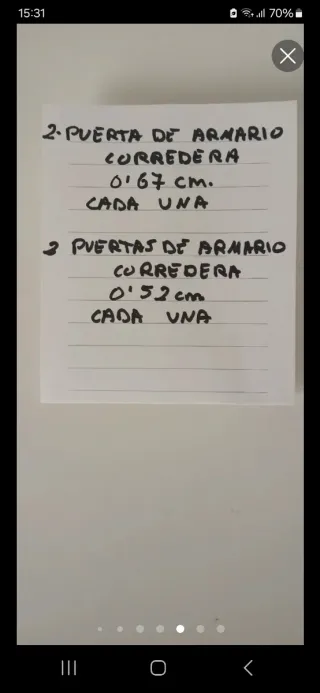 15:31
70%
2. PUERTA DE ARMARIO
CORREDERA
0'67 cm.
CADA UNA
2 PUERTAS DE ARMARIO
CORREDERA
0'52 cm
CADA UNA